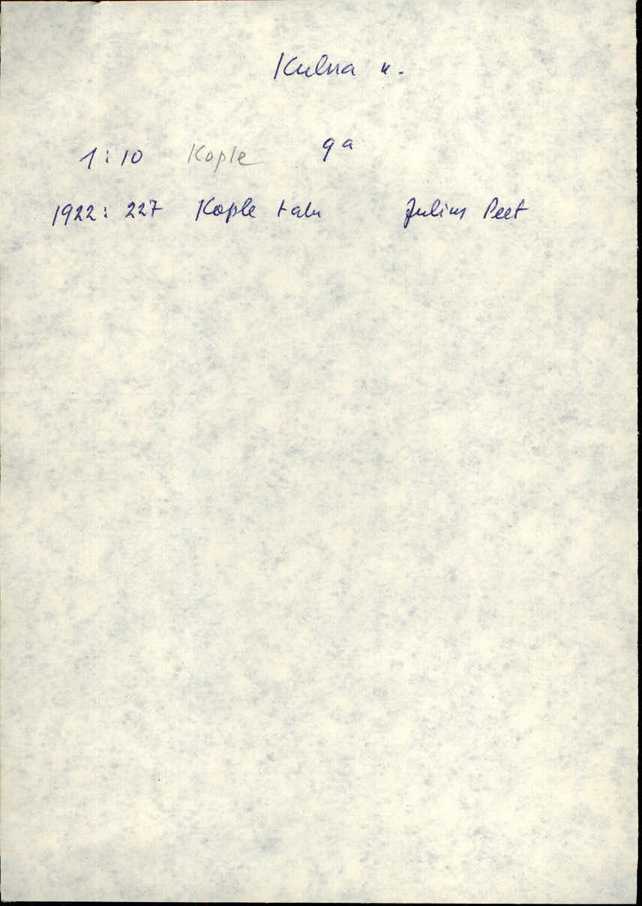 Kulna k.
1:10 Kople 9a
1922: 227 Kople talu Julius Peet